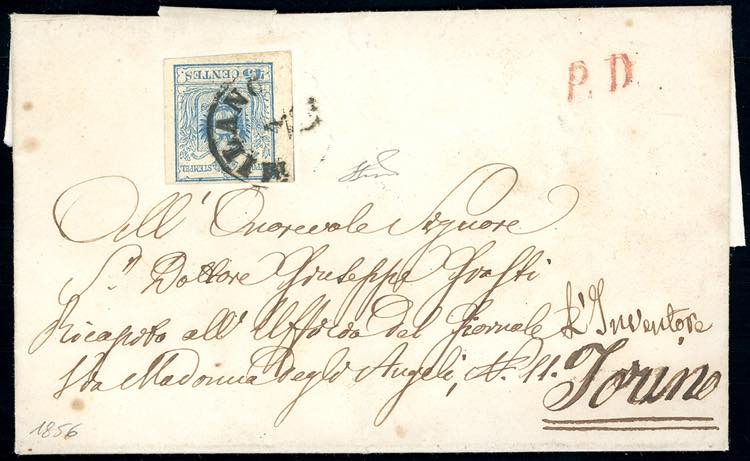 45 CENTES.
KKPOST-STEMPEL
MILANO
P. D.
All' Onorevole Signore
Sr. Dottore Giuseppe
Ricapito all' Ufficio del Giornale L'Inventore
Via Madonna degli Angeli, N. 11.
Torino
1856